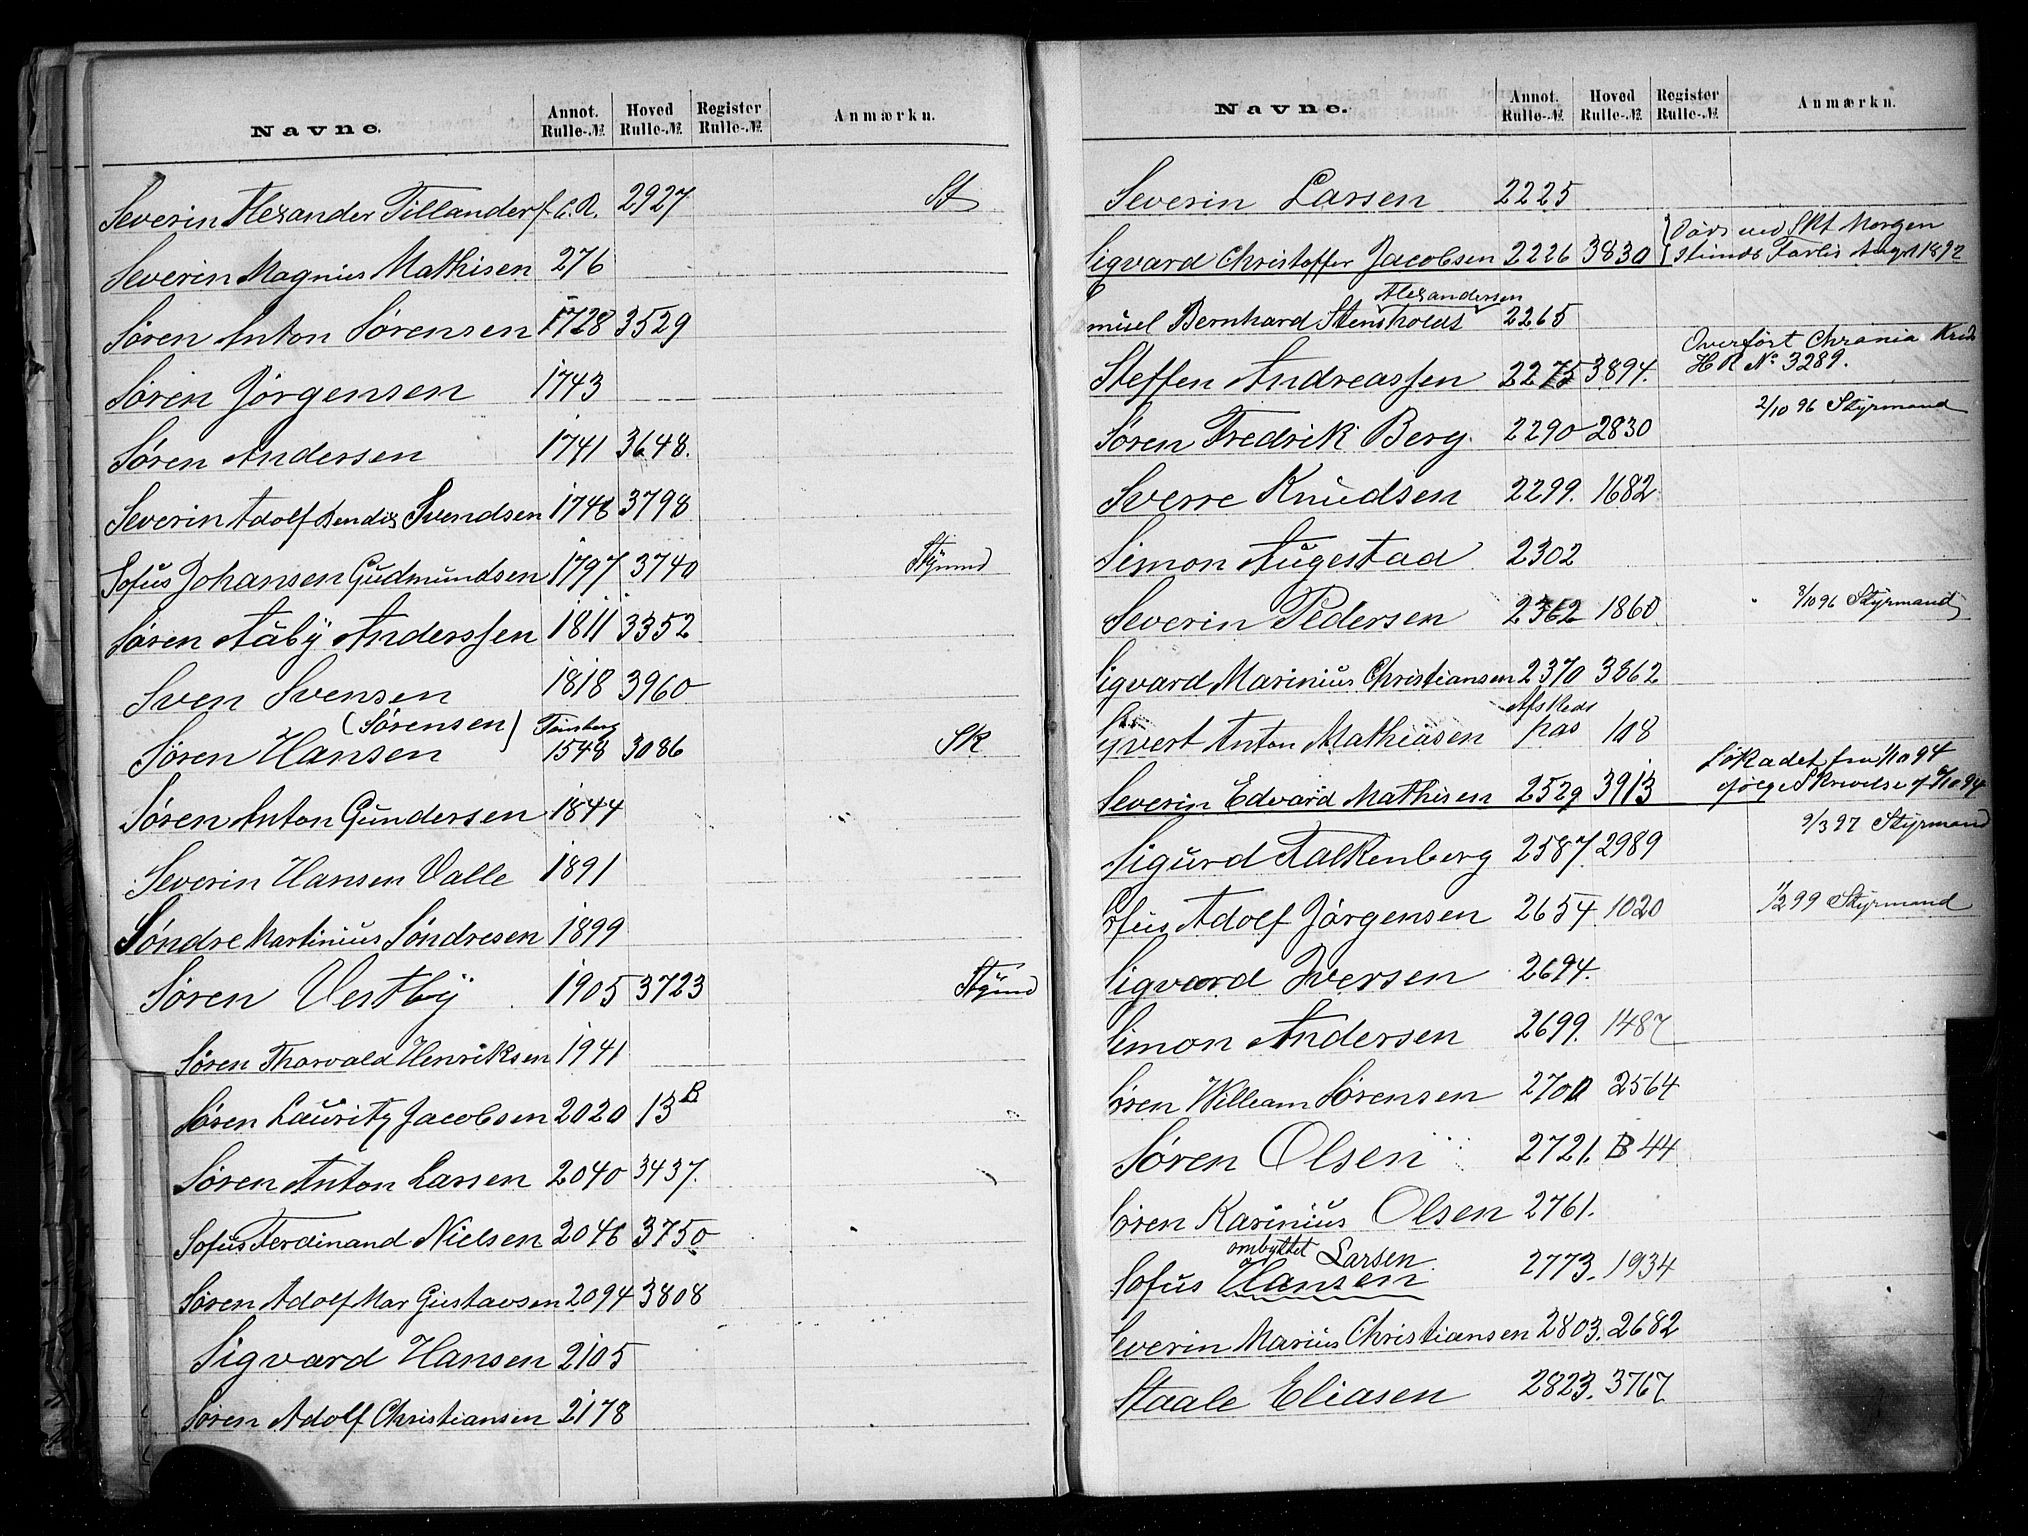 Navne. Annot. Rulle-№ Hoved Rulle-№ Register Rulle-№ Anmærkn.
Severin Alexander Tillander f.C.R. 2927 St
Severin Magnus Mathisen 276
Søren Anton Sørensen 1728 3529
Søren Jørgensen 1743
Søren Andersen 1741 3648.
Severin Adolf Bendix Svendsen 1748 3798
Sofus Johansen Gudmundsen 1797 3740 Stÿrmd
Søren Aaby Anderssen 1811 3352
Sven Svensen 1818 3960
(Sørensen)
Søren Hansen 1548 3086 SK
Søren Anton Gundersen 1844
Severin Hansen Valle 1891
Søndre Martinius Søndresen 1899
Søren Vestby 1905 3723 Stÿrmd
Søren Thorvald Henriksen 1941
Søren Lauritz Jacobsen 2020 13 B
Søren Anton Larsen 2040 3437.
Sofus Ferdinand Nielsen 2046 3750
Søren Adolf Mar Gustavsen 2094 3808
Sigvard Hansen 2105
Søren Adolf Christiansen 2178
Navne. Annot. Rulle-№ Hoved Rulle-№ Register Rulle-№ Anmærkn.
Severin Larsen 2225
Sigvard Christoffer Jacobsen 2226 3830 Skt Morgen
Forlis Augst 1892
Alexandersen
Bernhard Stensholdt 2265
Overført Chrania Kreds
Steffen Andreassen 2275 3894. HR No 3289.
Søren Fredrik Berg. 2290 2830 2/10 96 Styrmand
Sverre Knudsen 2299. 1682
Simon Augestad 2302
Severin Pedersen 2362 1860. 8/10 96 Styrmand
Sigvard Marinius Christiansen 2370 3862
Afskeds
Syvert Anton Mathiasen pas 108
Søkadet fra 1/10 94
Severin Edvard Mathisen 2529 3913 ifølge Skrivelse af 6/10 94
9/3 97 Styrmand
Sigurd Falkenberg 2587. 2989
Sofus Adolf Jørgensen 2654 1020 1/2 99 Styrmand
Sigvard Iversen 2694.
Simon Andersen 2699. 1487
Søren William Sørensen 2700 2564
Søren Olsen 2721. B 44
Søren Karinius Olsen 2761.
ombyttet Larsen.
Sofus Hansen 2773. 1934
Severin Marius Christiansen 2803. 2682
Staale Eliasen 2823. 3767